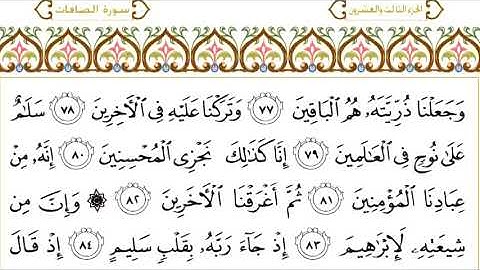 الجزء الثالث والعشرون سورة الصافات
وَجَعَلْنَا ذُرِّيَّتَهُۥ هُمُ ٱلْبَاقِينَ ٧٧ وَتَرَكْنَا عَلَيْهِ فِى ٱلْـَٔاخِرِينَ ٧٨ سَلَـٰمٌ
عَلَىٰ نُوحٍ فِى ٱلْعَـٰلَمِينَ ٧٩ إِنَّا كَذَٰلِكَ نَجْزِى ٱلْمُحْسِنِينَ ٨٠ إِنَّهُۥ مِنْ
عِبَادِنَا ٱلْمُؤْمِنِينَ ٨١ ثُمَّ أَغْرَقْنَا ٱلْـَٔاخَرِينَ ٨٢ ۞ وَإِنَّ مِن
شِيعَتِهِۦ لَإِبْرَٰهِيمَ ٨٣ إِذْ جَآءَ رَبَّهُۥ بِقَلْبٍ سَلِيمٍ ٨٤ إِذْ قَالَ